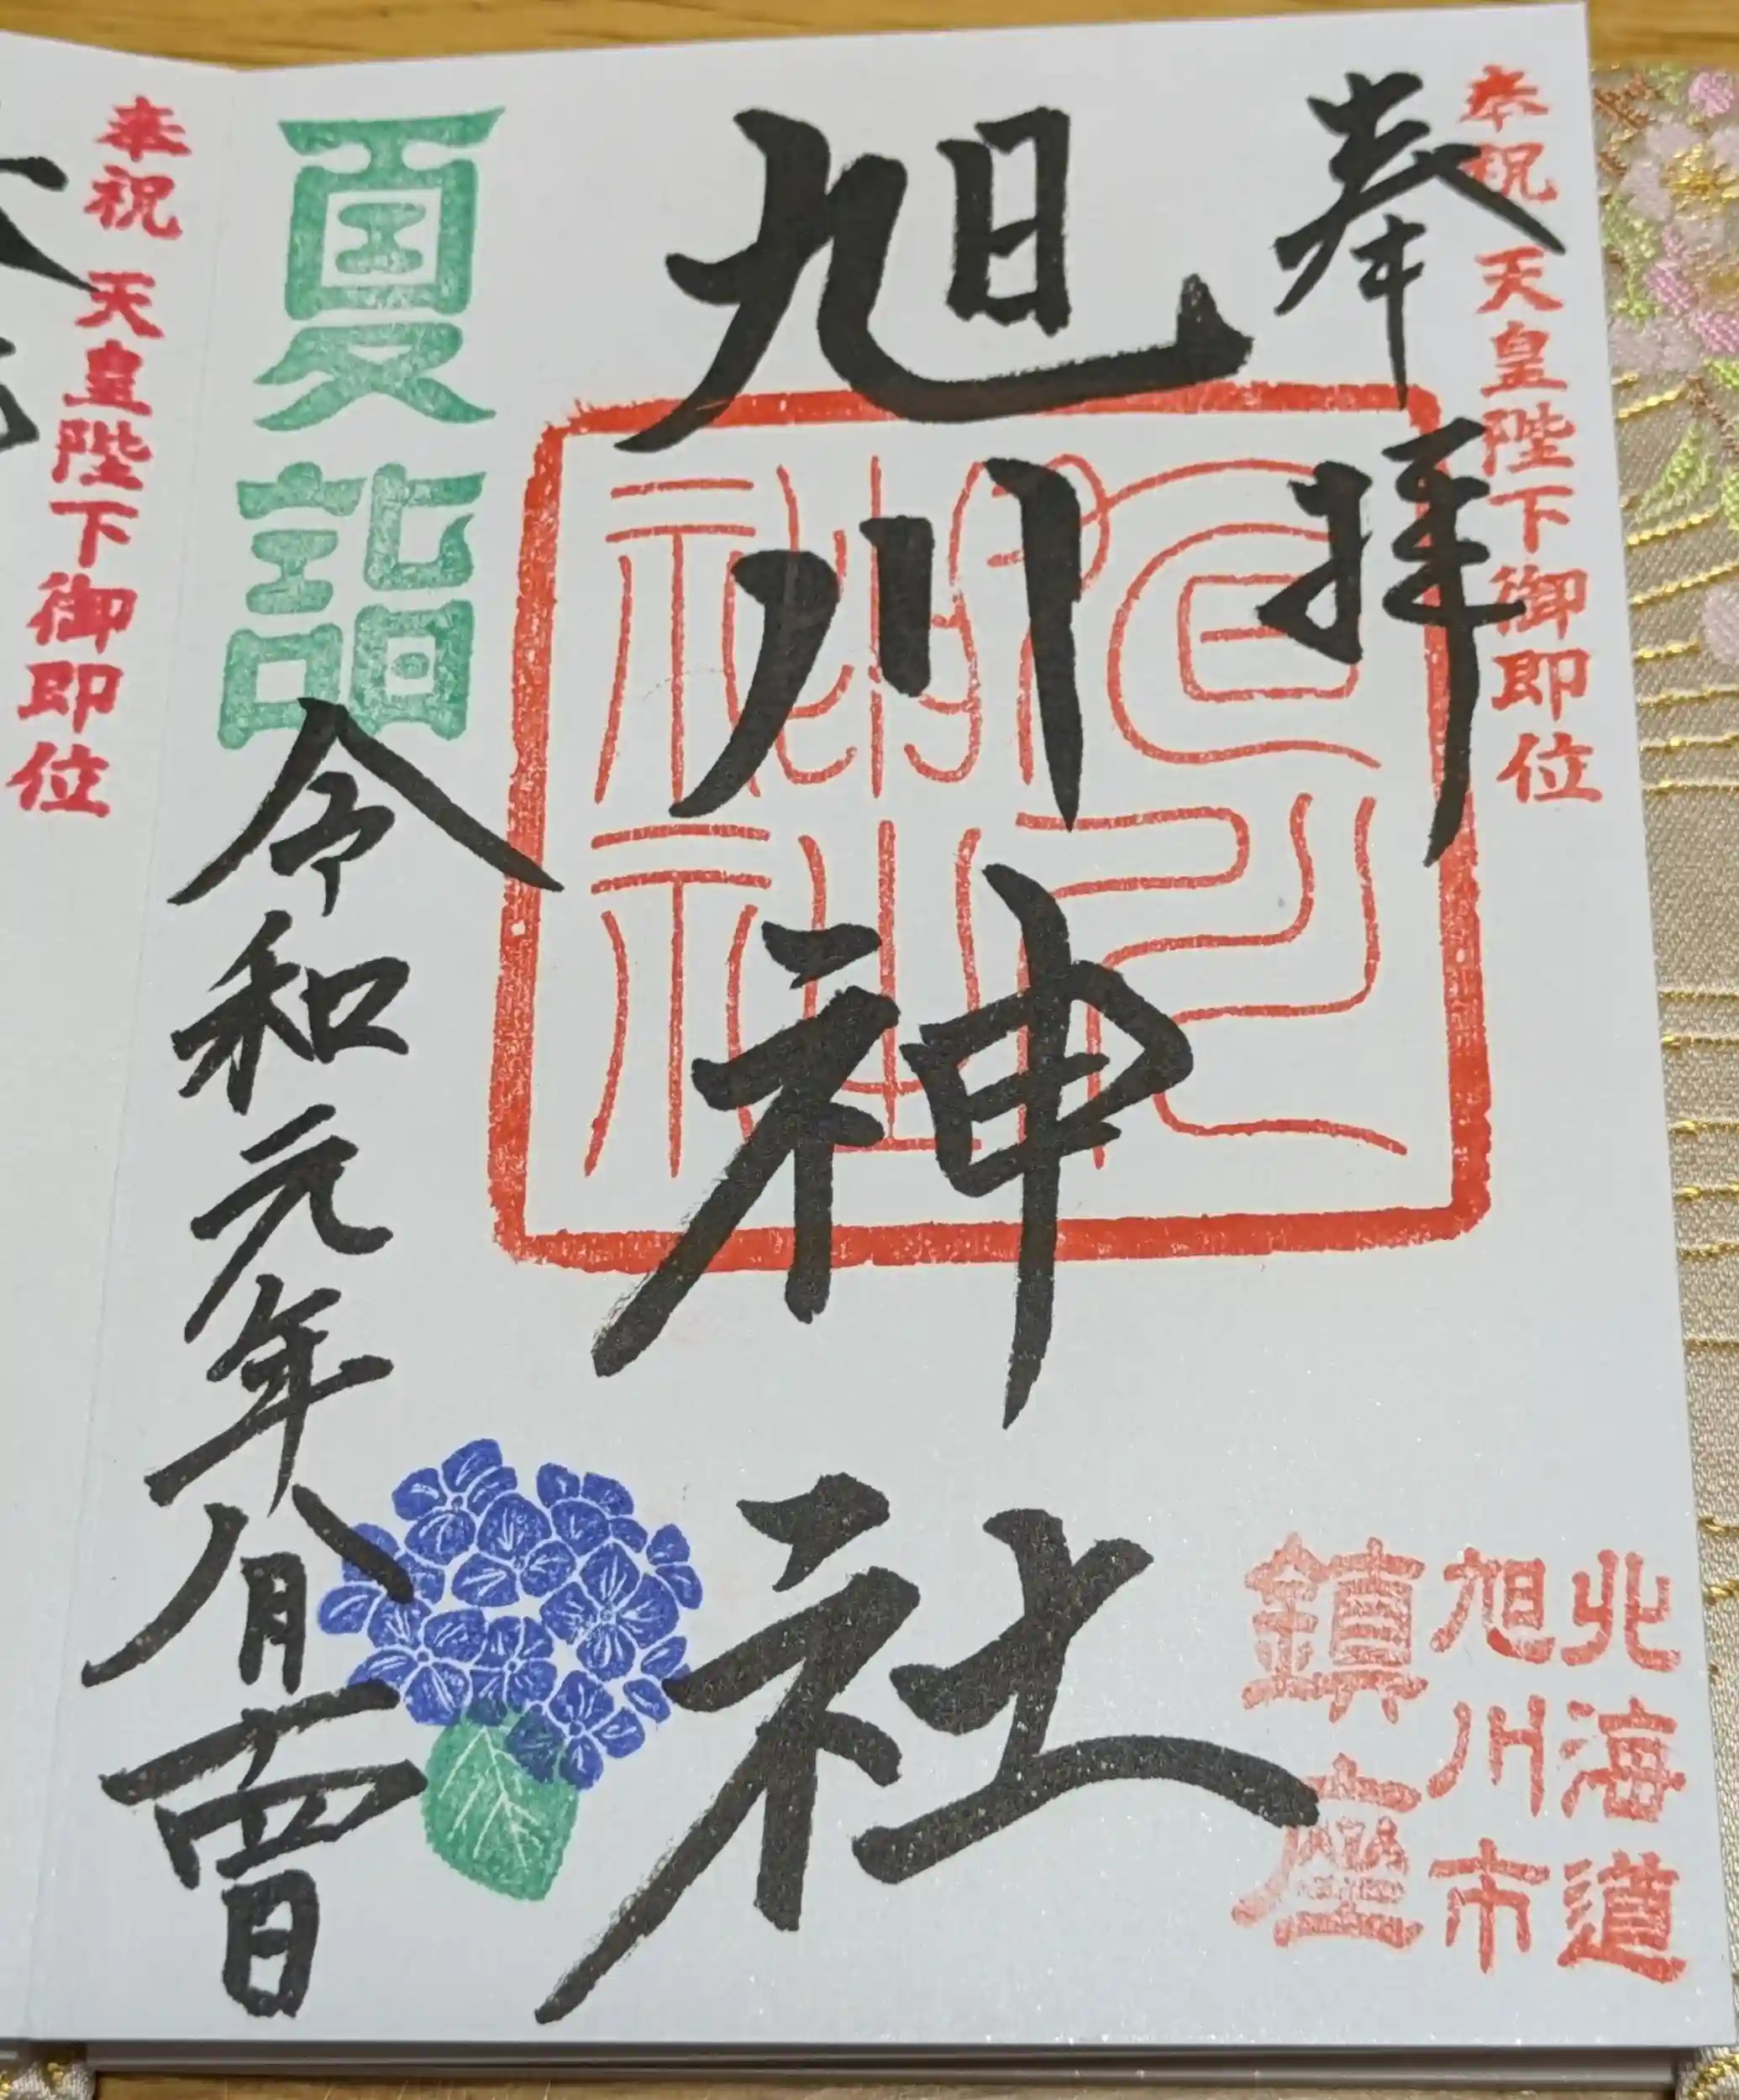 奉祝 天皇陛下御即位
奉拝
北海道
旭川市
鎮座
旭川神社
旭川神社
夏詣
令和元年八月十四日
奉祝 天皇陛下御即位